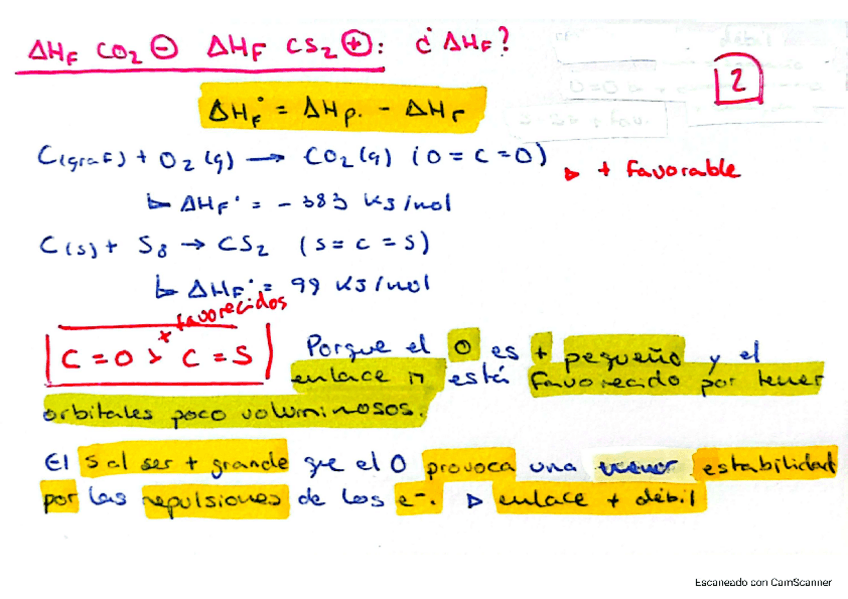 ΔHF CO2 ⊖ ΔHF CS2 ⊕: ¿ ΔHF?
2
ΔHF° = ΔHp. - ΔHr
C(graf) + O2 (g) → CO2 (g) (O = C = O)
▷ + favorable
↳ ΔHF° = - 383 KJ/mol
C(s) + S8 → CS2 (S = C = S)
↳ ΔHF° = 99 KJ/mol
+ favorecidos
C = O > C = S
Porque el O es + pequeño y el
enlace π está favorecido por tener
orbitales poco voluminosos.
El S al ser + grande que el O provoca una menor estabilidad
por las repulsiones de los e-. ▷ enlace + débil
Escaneado con CamScanner